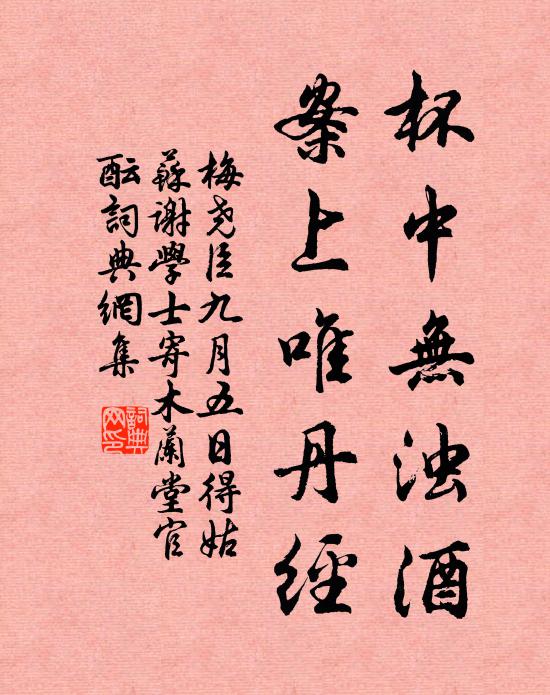 杯中無浊酒
案上唯丹經
梅尧臣九月五日得姑
蘇謝學士寄木蘭堂官
酝詞典網集
詞典
网印